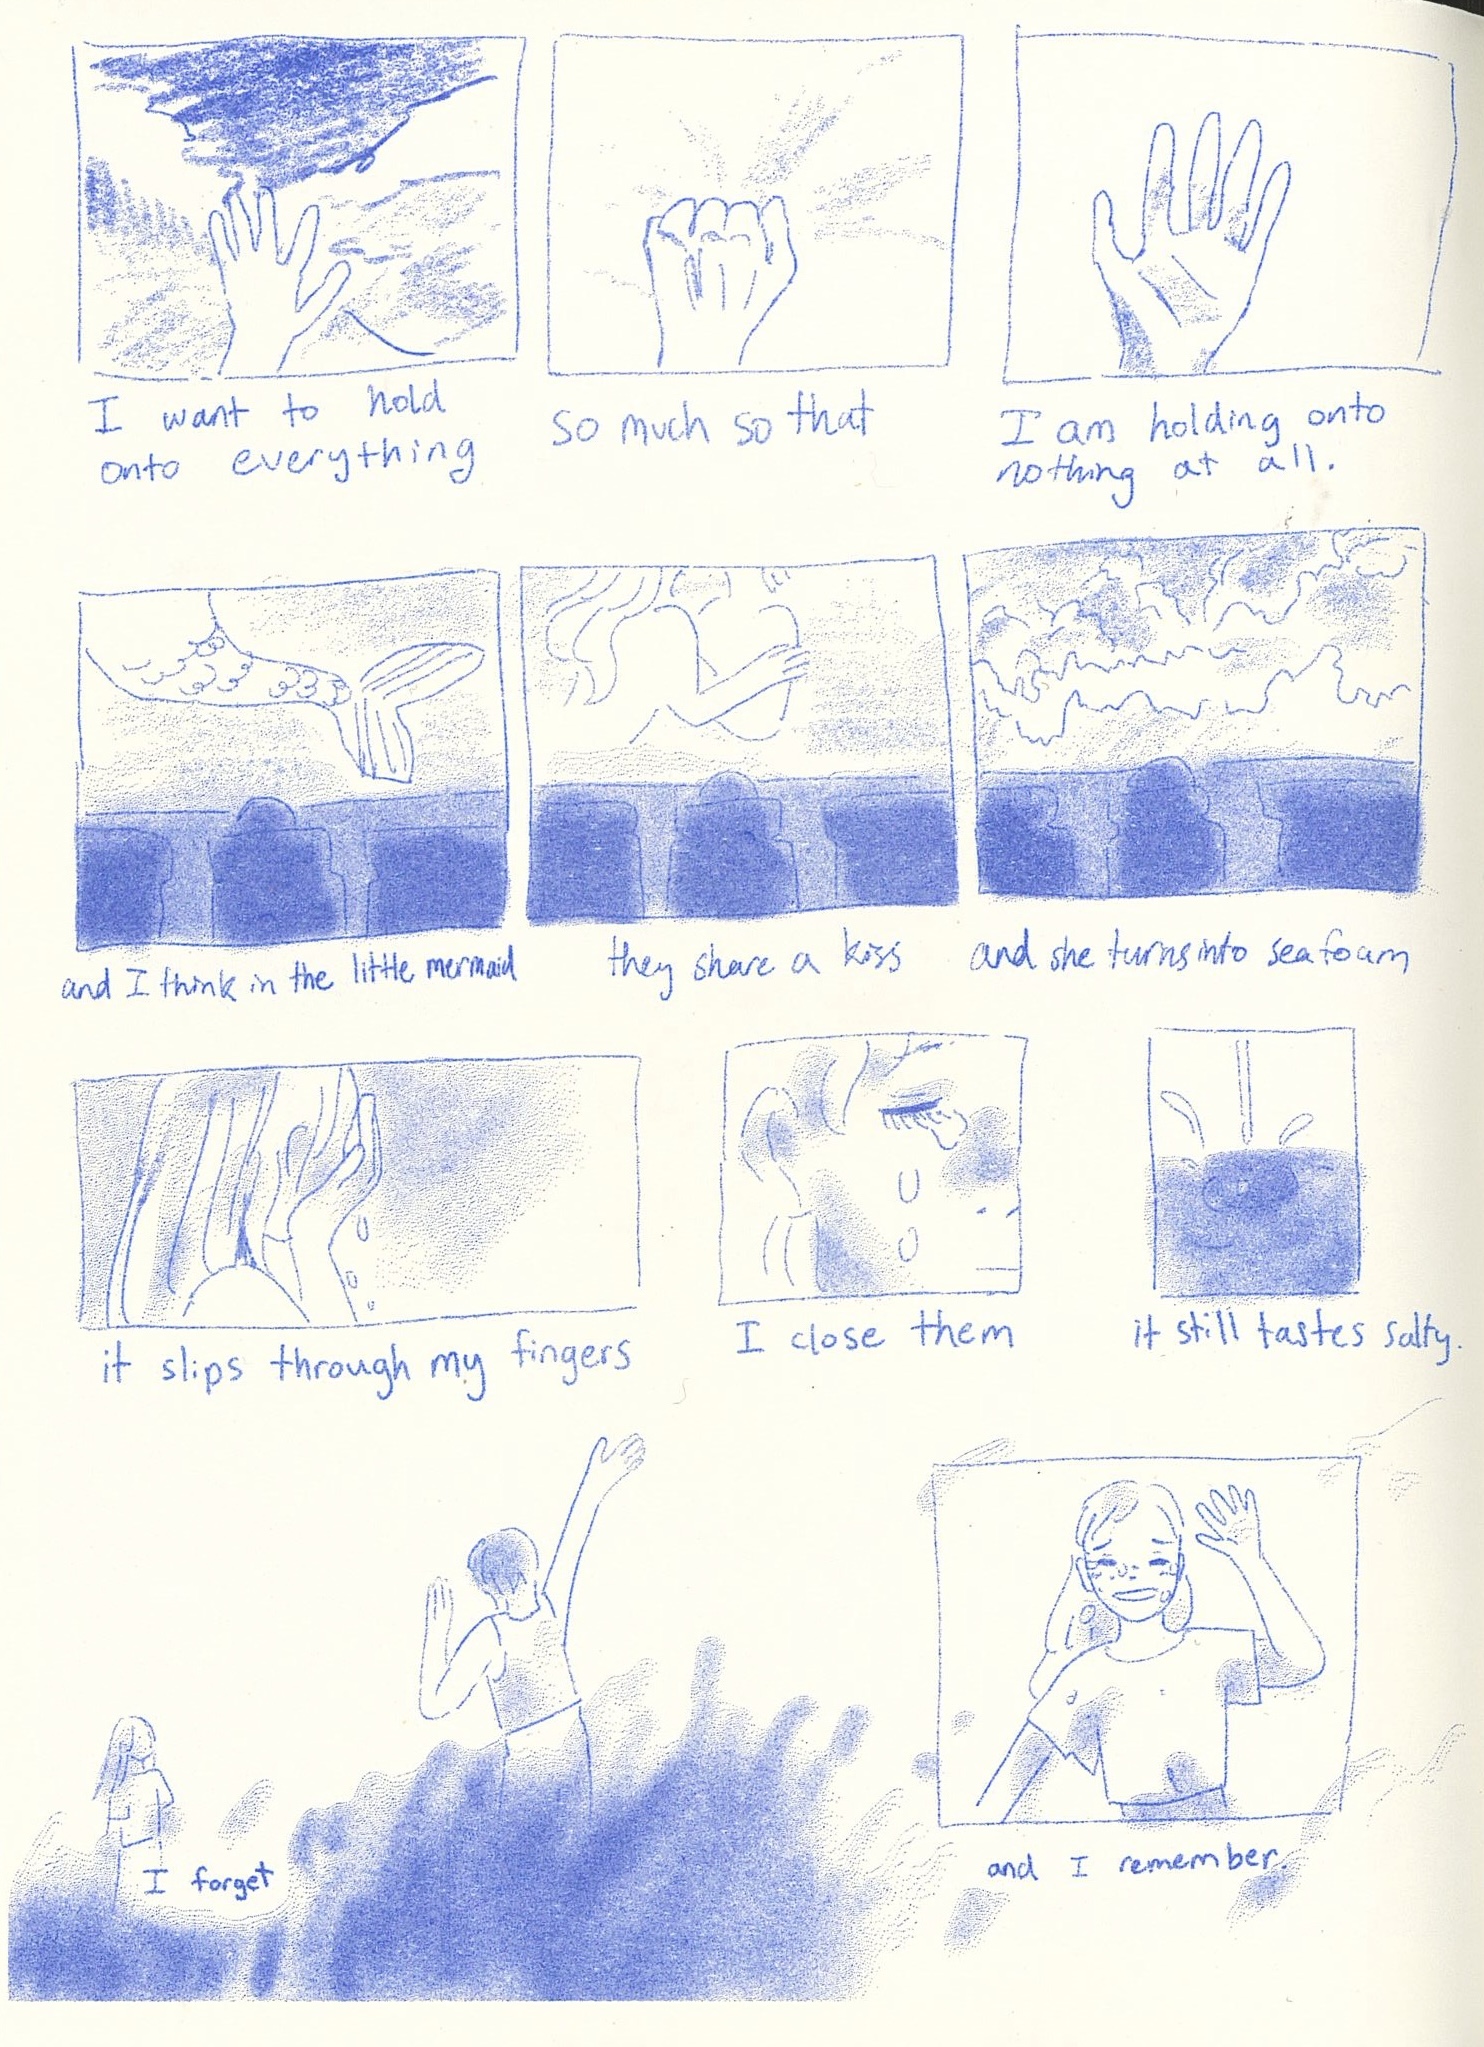 I want to hold
onto everything
so much so that
I am holding onto
nothing at all.
and I think in the little mermaid
they share a kiss
and she turns into sea foam
it slips through my fingers
I close them
it still tastes salty.
I forget
and I remember.